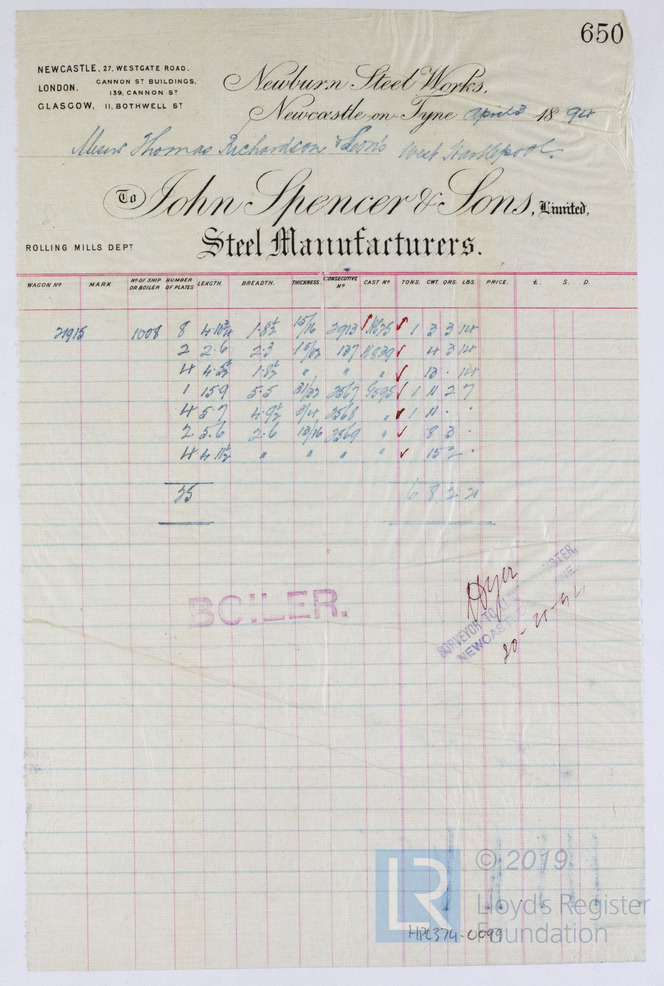 650
NEWCASTLE, 27, WESTGATE ROAD.
LONDON. CANNON ST BUILDINGS, 139, CANNON ST
GLASGOW, 11, BOTHWELL ST
Newburn Steel Works,
Newcastle on Tyne April 3 1894
Messrs Thomas Richardson & Sons West Hartlepool.
To John Spencer & Sons, Limited,
ROLLING MILLS DEPT
Steel Manufacturers.
WAGON No MARK No OF SHIP OR BOILER NUMBER OF PLATES LENGTH. BREADTH. THICKNESS. CONSECUTIVE No CAST No TONS. CWT. QRS. LBS. PRICE. £. S. D.
21915 1008 8 4.10¾ 1.8½ 15/16 2913 1 3 3 14
2 2.6 2.3 15/32 137 4 3 14
4 4.5½ 1.8½ " " " 13 . 14
1 15.9 5.5 31/32 2567 1 11 2 7
4 5.7 4.9½ 3/4 2568 " 1 11 . .
2 5.6 2.6 13/16 2569 " 8 3 .
4 4.11½ " " " " 15 2 .
25 6 8 2 21
BOILER.
SURVEYOR TO
NEWCASTLE
HPL374-0099
LR
© 2019
Lloyd's Register
Foundation